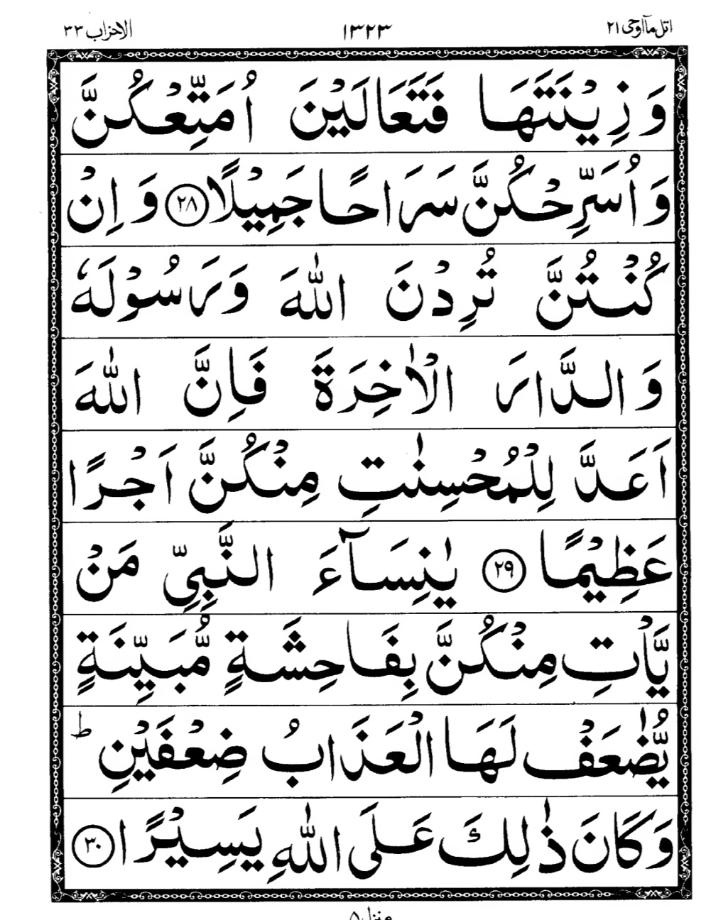 اتل مآ اوحی ۲۱ ۱۳۲۳ الاحزاب ۳۳
وَ زِیْنَتَهَا فَتَعَالَیْنَ اُمَتِّعْكُنَّ
وَ اُسَرِّحْكُنَّ سَرَاحًا جَمِیْلًا ﴿۲۸﴾ وَ اِنْ
كُنْتُنَّ تُرِدْنَ اللّٰهَ وَ رَسُوْلَهٗ
وَ الدَّارَ الْاٰخِرَةَ فَاِنَّ اللّٰهَ
اَعَدَّ لِلْمُحْسِنٰتِ مِنْكُنَّ اَجْرًا
عَظِیْمًا ﴿۲۹﴾ یٰنِسَآءَ النَّبِیِّ مَنْ
یَّاْتِ مِنْكُنَّ بِفَاحِشَةٍ مُّبَیِّنَةٍ
یُّضٰعَفْ لَهَا الْعَذَابُ ضِعْفَیْنِ ؕ
وَ كَانَ ذٰلِكَ عَلَی اللّٰهِ یَسِیْرًا ﴿۳۰﴾
منزل ۵